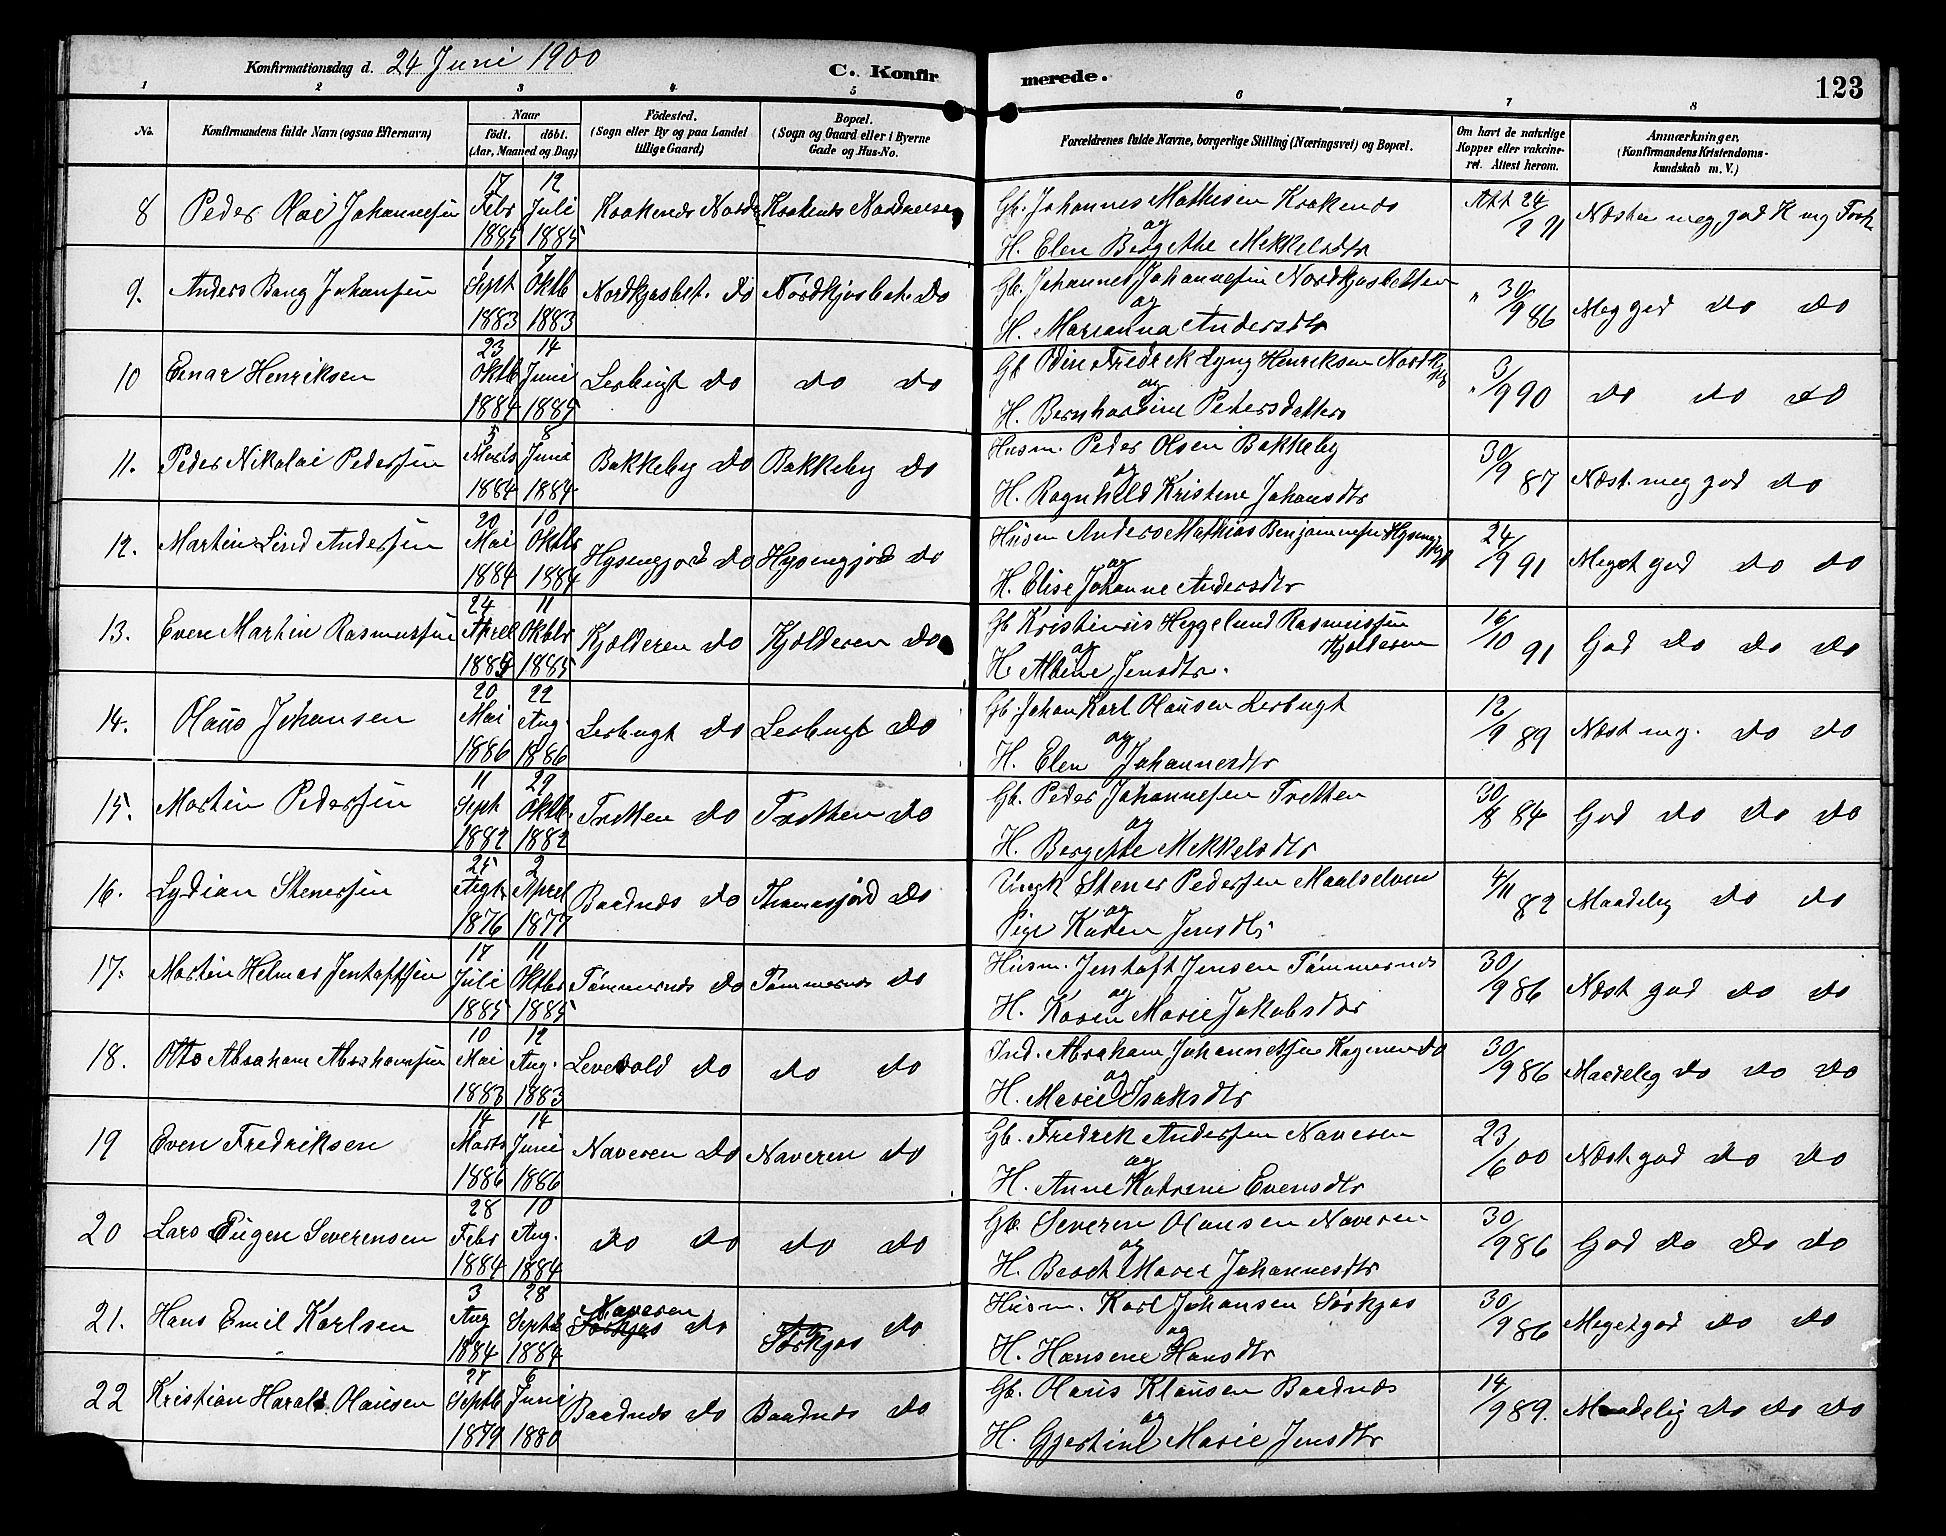 Konfirmationsdag d. 24 Juni 1900
C. Konfirmerede.
123
1 2 3 4 5 6 7 8
No.
Konfirmandens fulde Navn (ogsaa Efternavn)
Naar
født. døbt.
(Aar, Maaned og Dag)
Fødested.
(Sogn eller By og paa Landet
tillige Gaard)
Bopæl.
(Sogn og Gaard eller i Byerne
Gade og Hus-No.
Forældrenes fulde Navne, borgerlige Stilling (Næringsvei) og Bopæl.
Om havt de naturlige
Kopper eller vakcine-
ret. Attest herom.
Anmærkninger.
(Konfirmandens Kristendoms-
kundskab m. V.)
8 Peder Olai Johannesen 17 Febr 1885 12 Juli 1885 Gb. Johannes Mathisen Kraknes
og
H. Elen Bergethe Mekkelsdtr
Att 24/9 91
9. Anders Bang Johansen Sept 1883 7 Oktb 1883 Nordkjosbot. do Nordkjosbot. do Gb. Johannes Johannesen Nordkjosbotten
og
H. Marianna Andersdtr
" 30/9 86 Meg god do do
10 Einar Henriksen 23 Oktb 1884 14 Juni 1885 Lerbugt do do do Gb Odin Fredrik Lyng Henriksen
og
H. Bernhardine Petersdatter
" 3/9 90 do do do
11. Peder Nikolai Pedersen 5 Marts 1884 8 Juni 1884 Bakkeby do Bakkeby do Husm. Peder Olsen Bakkeby
og
H. Ragnhild Kristine Johansdtr
30/9 87 Næst. meg god do
12. Martin Lind Andersen 20 Mai 1884 10 Oktbr 1884 Hysingjord do Hysingjord do Husm Anders Mathias Benjaminsen
og
H. Elise Johanne Andersdtr
24/9 91 Meget god do do
13. Even Martin Rasmussen 24 April 1885 11 Oktbr 1885 Kjolderen do Kjolderen do Gb Kristinius Heggelund Rasmussen
og Kjolderen
H. Albine Jensdtr.
16/10 91 God do do do
14. Olaus Johansen 20 Mai 1886 22 Aug. 1886 Lerbugt do Lerbugt do Gb. Johan Karl Olausen Lerbugt
og
H. Elen Johannesdtr
12/9 89 Næst meg. do do
15. Martin Pedersen 11 Sept 1882 29 Oktb. 1882 Tretten do Tretten do Gb. Peder Johannesen Tretten
og
H. Bergethe Mekkelsdtr
30/8 84 God do do do
16. Lydian Stenersen 25 Augt 1876 2 April 1877 Baadnæs do Thomasjord do Ungk Stener Pedersen Maalselven
og
Pige Karen Jensdtr
4/11 82 Maadelig do do
17. Martin Helmer Jentoftsen 17 Juli 1885 11 Oktbr 1885 Tømmernæs do Tømmernæs do Husm. Jentoft Jensen Tømmernæs
og
H. Karen Marie Jakobsdtr
30/9 86 Næst god do do
18. Otto Abraham Abrahamsen 10 Mai 1883 12 Aug. 1883 do do do Ind. Abraham Johannesen
og
H. Marie Isaksdtr
30/9 86 Maadelig do do do
19 Even Fredriksen 14 Marts 1886 14 Juni 1886 Naveren do Naveren do Gb. Fredrik Andersen Naveren
og
H. Anne Katrine Evensdtr
23/6 00 Næst god do do
20 Lars Eugen Severensen 28 Febr 1884 10 Aug. 1884 do do do do Gb. Severin Olausen Naveren
og
H. Marie Johannesdtr
30/9 86 God do do do
21. Hans Emil Karlsen 3 Aug 1884 28 Septb 1884 Naveren
Sørkjos do do
Sørkjos do Husm. Karl Johansen Sørkjos
og
H. Hansine Hansdtr
30/9 86 Meget god do do
22 Kristian Harald Olausen Septb 1879 6 Juni 1880 Baadnæs do Baadnæs do Gb. Olaus Klausen Baadnæs
og
H. Gjertine Marie Jensdtr
14/9 89. Maadelig do do do